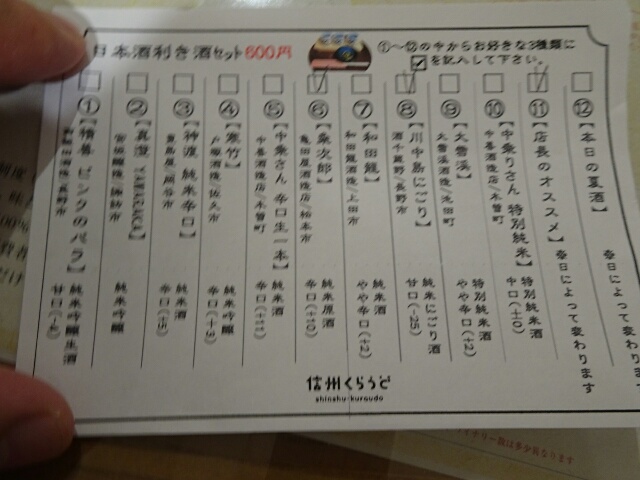 日本酒利き酒セット 600円
①〜⑫の中からお好きな3種類に
☑を記入して下さい。
①【積善 ピンクのバラ】
長野市
純米吟醸生酒
甘口(-4)
②【真澄 YAWARAKA】
宮坂醸造/諏訪市
純米吟醸
③【神渡 純米辛口】
豊島屋/岡谷市
純米酒
辛口(+5)
④【寒竹】
戸塚酒造/佐久市
純米吟醸
辛口(+3)
⑤【中乗さん 辛口生一本】
中善酒造店/木曽町
純米酒
辛口(+11)
⑥【亀次郎】
亀田屋酒造店/松本市
純米原酒
辛口(+10)
⑦【和田龍】
和田龍酒造/上田市
純米酒
やや辛口(+2)
⑧【川中島にごり】
酒千蔵野/長野市
純米にごり酒
甘口(-25)
⑨【大雪渓】
大雪渓酒造/池田町
特別純米酒
やや辛口(+2)
⑩【中乗りさん 特別純米】
中善酒造店/木曽町
特別純米酒
中口(±0)
⑪【店長のオススメ】
※日によって変わります
⑫【本日の夏酒】
※日によって変わります
信州くらうど
shinshu-kuraudo